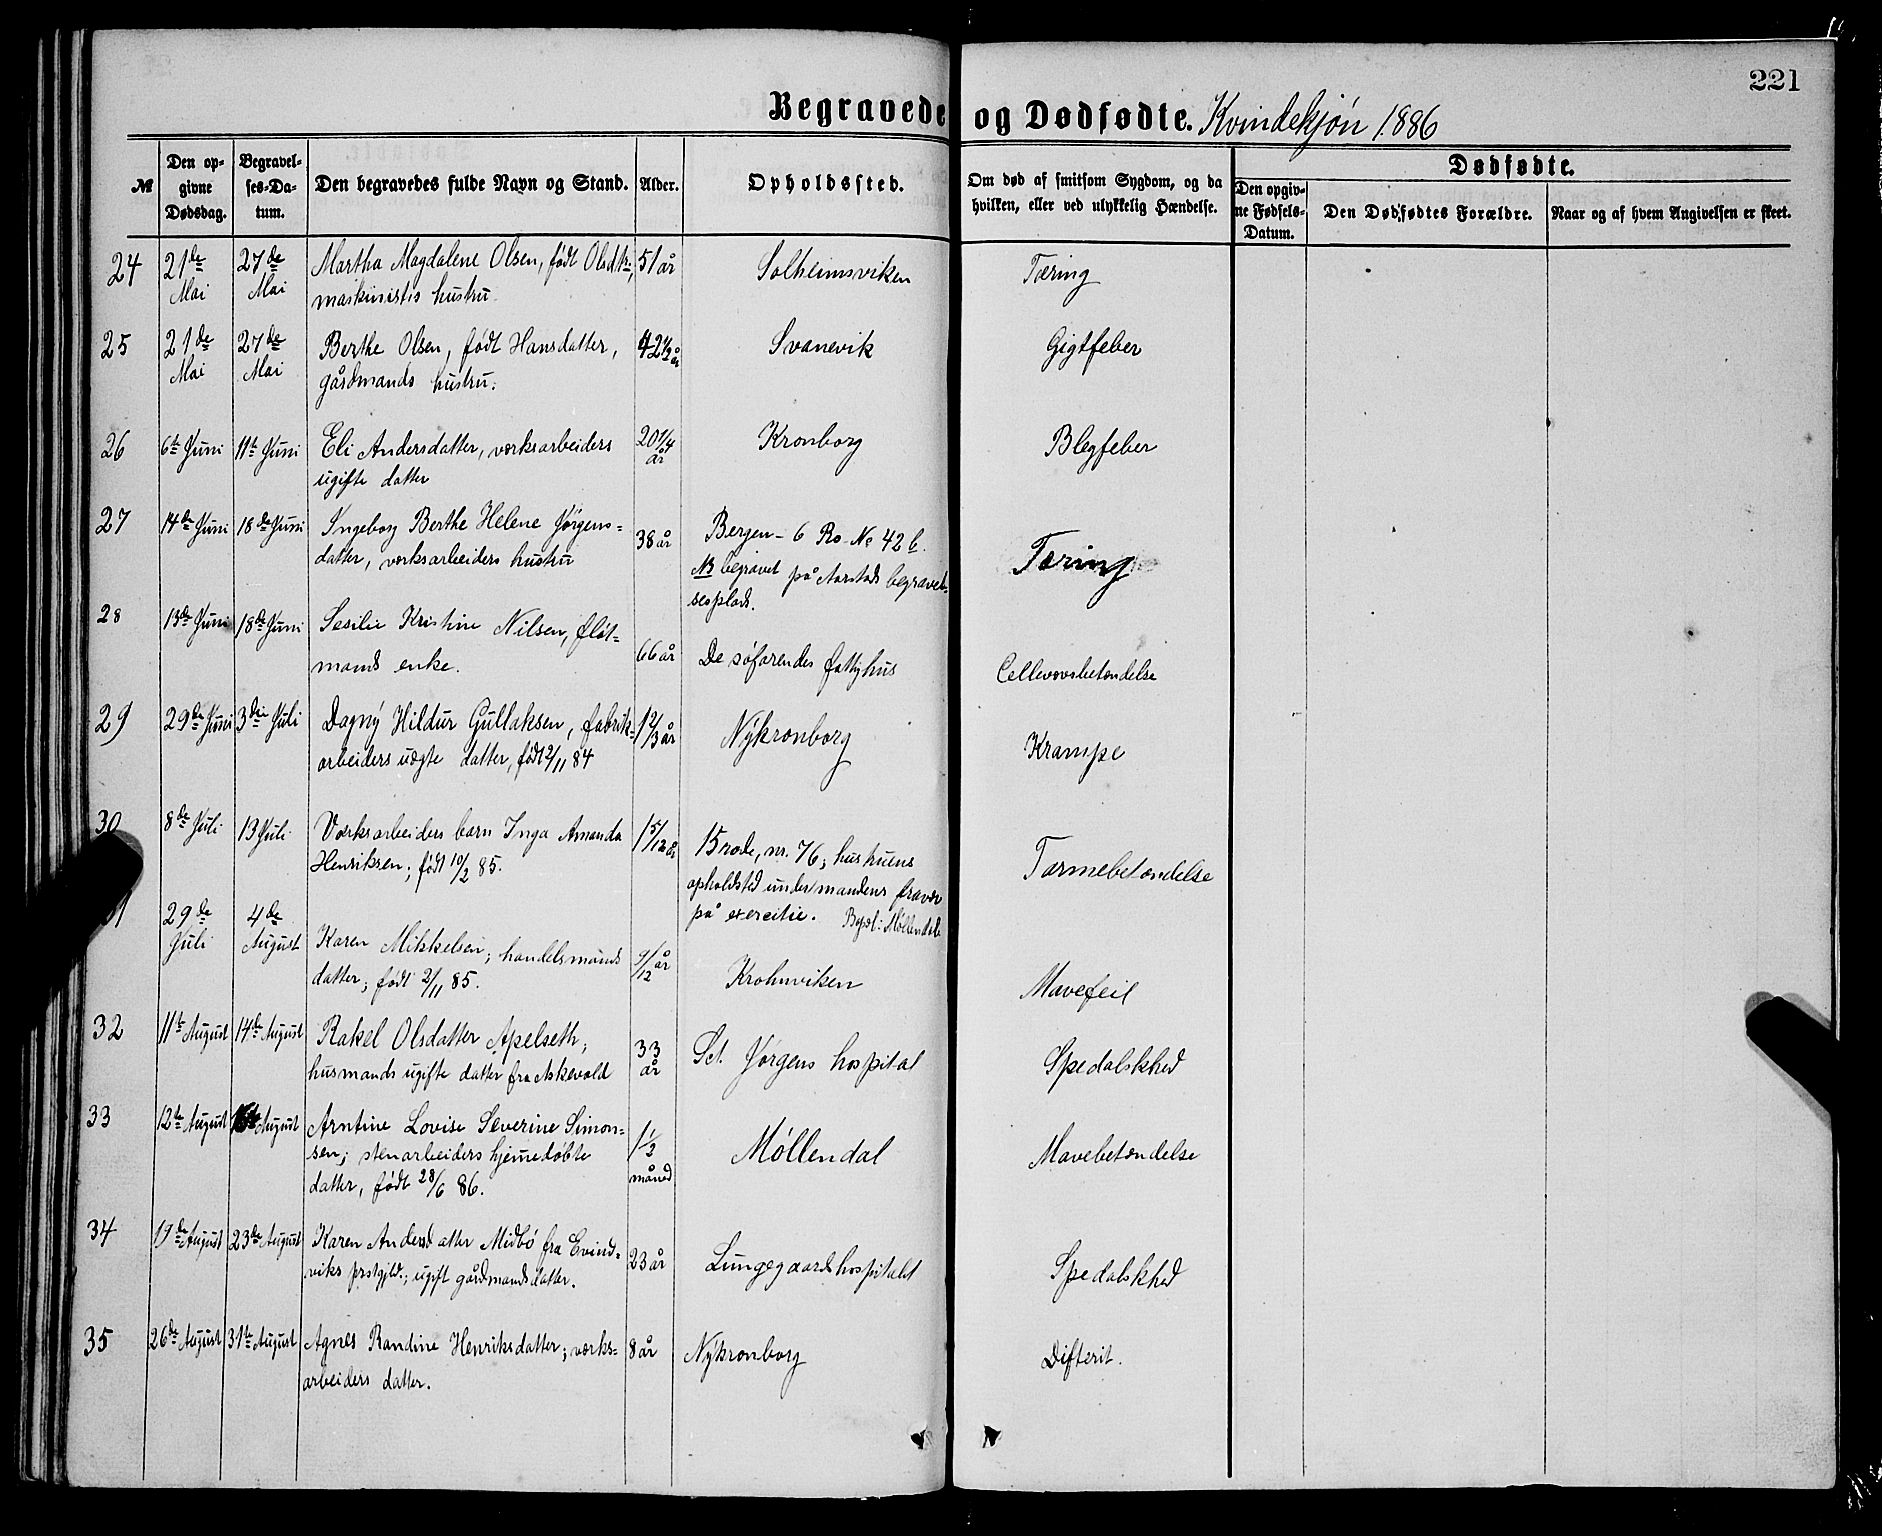 221
Begravede og Dødfødte. Kvindekjøn 1886
№
Den opgivne Dødsdag.
Begravelses-Datum.
Den begravedes fulde Navn og Stand.
Alder.
Opholdssted.
Om død af smitsom Sygdom, og da hvilken, eller ved ulykkelig Hændelse.
Dødfødte.
Den opgivne Fødsels-Datum.
Den Dødfødtes Forældre.
Naar og af hvem Angivelsen er skeet.
24 21de Mai 27de Mai Martha Magdalene Olsen, født Olsdtr., 51 år Solheimsviken Tæring
maskinistes hustru.
25 21de Mai 27de Mai Berthe Olsen, født Hansdatter, 42 1/2 år Svanevik Gigtfeber
gårdmands hustru.
26 6te Juni 11te Juni Eli Andersdatter, værksarbeiders 20 1/4 år Kronborg Blegfeber
ugifte datter
27 14de Juni 18de Juni Ingeborg Berthe Helene Jørgens- 38 år Bergen - 6 Ro. No 42 b. Tæring
datter, værksarbeiders hustru NB begravet på Aarstads begravel-
sesplads.
28 13de Juni 18de Juni Sesilie Kristine Nilsen, fløt- 66 år De søfarendes fattighus Cellevævsbetændelse
mands enke.
29 29de Juni 3die Juli Dagny Hildur Gullaksen, fabrik- 1 2/3 år Nykronborg Krampe
arbeiders uægte datter, født 2/11 84
30 8de Juli 13 Juli Værksarbeiders barn Inga Amanda 1 5/12 år 15 rode, nr. 76; hustruens Tarmebetændelse
Henriksen; født 10/2 85. opholdsted under mandens fravær
på exercitie. Bopæl: Møllendal
31 29de Juli 4de August Karen Mikkelsen; handelsmands 9/12 år Krohnviken Mavefeil
datter; født 2/11 85.
32 11te August 14de August Rakel Olsdatter Apelseth; 33 år Sct. Jørgens hospital Spedalskhed
husmands ugifte datter fra Askevold
33 12te August 16de August Arntine Lovise Severine Simon- 1 1/2 måned Møllendal Mavebetændelse
sen; stenarbeiders hjemedøbte
datter, født 28/6 86.
34 19de August 23de August Karen Andersdatter Midbö fra Evind- 23 år Lungegaardshospitalet Spedalskhed
viks prstgjld.; ugift gårdmandsdatter.
35 26de August 31te August Agnes Randine Henriksdatter; værks- 8 år Nykronborg Difterit.
arbeiders datter.